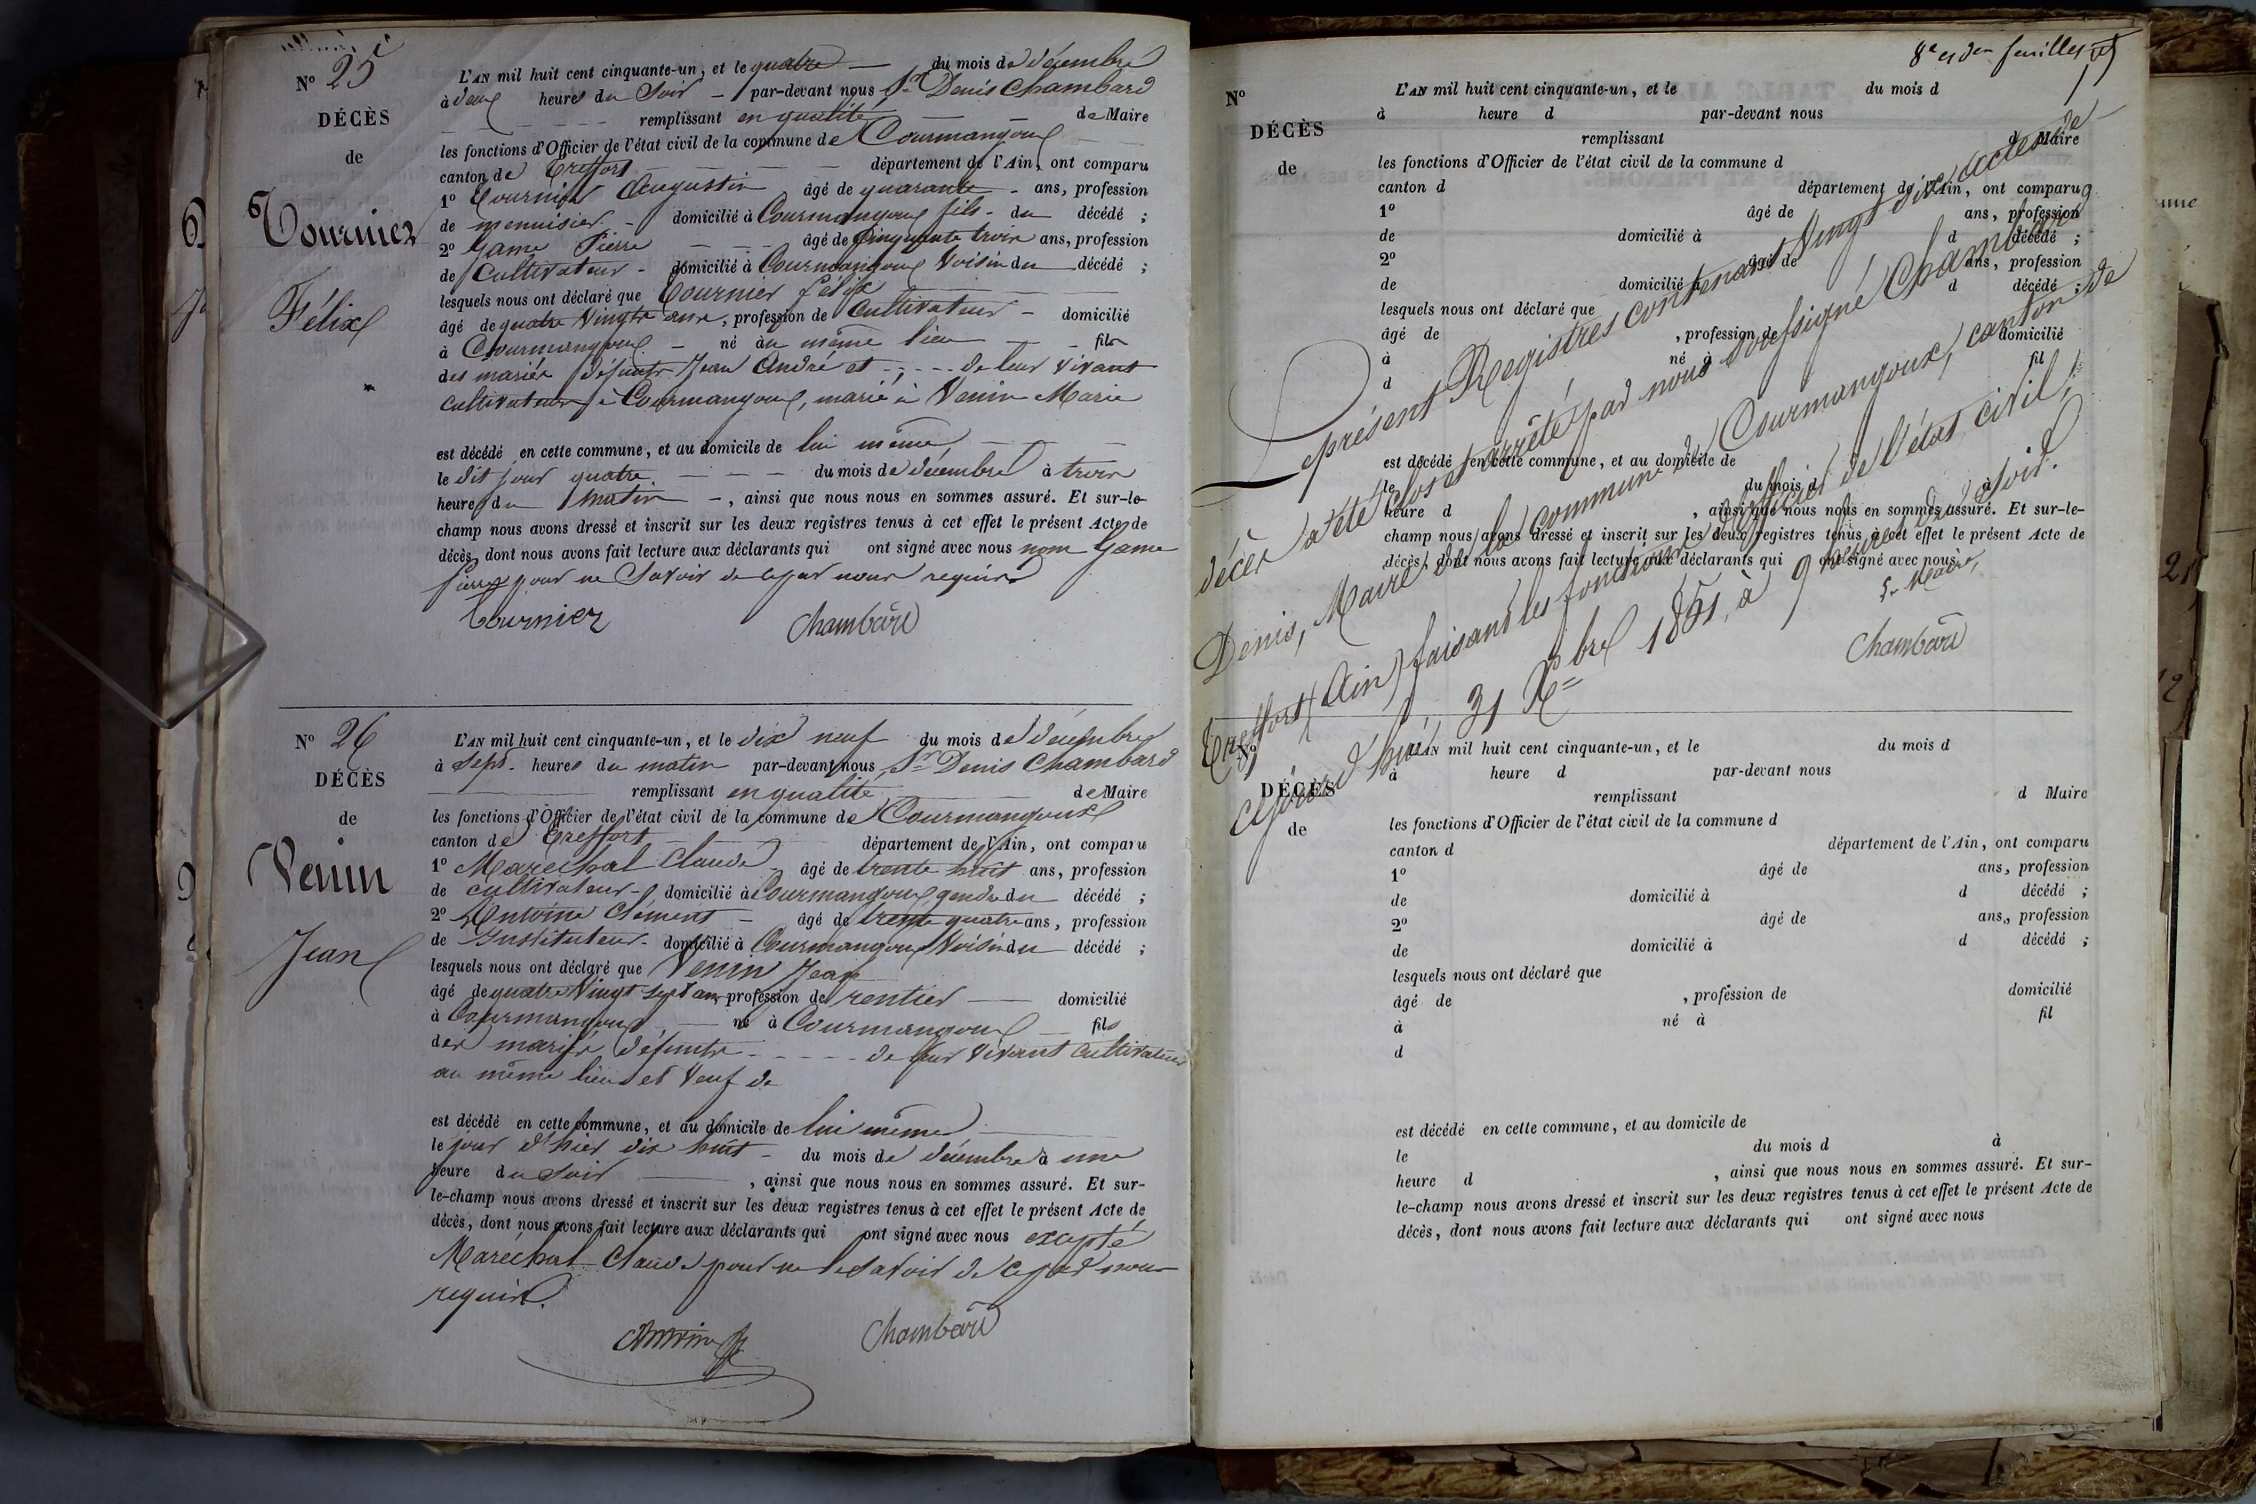 N° 25
DÉCÈS
de
Tournier
Félix
L'AN mil huit cent cinquante-un, et le quatre du mois de décembre
à deux heures du Soir par-devant nous Sr Denis Chambard
remplissant en qualité de Maire
les fonctions d'Officier de l'état civil de la commune de Courmangoux
canton de Treffort département de l'Ain, ont comparu
1° Tournier Augustin âgé de quarante ans, profession
de menuisier domicilié à Courmangoux fils du décédé ;
2° Game Pierre âgé de cinquante trois ans, profession
de Cultivateur domicilié à Courmangoux Voisin du décédé ;
lesquels nous ont déclaré que Tournier Félix
âgé de quatre Vingts ans, profession de Cultivateur domicilié
à Courmangoux né au même lieu fils
des mariés défunts Jean André et - - - - de leur Vivant
Cultivateurs à Courmangoux, marié à Venin Marie
est décédé en cette commune, et au domicile de lui même
le dit jour quatre du mois de décembre à trois
heures du matin , ainsi que nous nous en sommes assuré. Et sur-le-
champ nous avons dressé et inscrit sur les deux registres tenus à cet effet le présent Acte de
décès, dont nous avons fait lecture aux déclarants qui ont signé avec nous non Game
Pierre pour ne Savoir de ce par nous requis
Tournier Chambard
N° 26
DÉCÈS
de
Venin
Jean
L'AN mil huit cent cinquante-un, et le dix neuf du mois de décembre
à Sept heures du matin par-devant nous Sr Denis Chambard
remplissant en qualité de Maire
les fonctions d'Officier de l'état civil de la commune de Courmangoux
canton de Treffort département de l'Ain, ont comparu
1° Maréchal Claude âgé de trente huit ans, profession
de cultivateur domicilié à Courmangoux gendre du décédé ;
2° Antoine Clément âgé de trente quatre ans, profession
de Instituteur domicilié à Courmangoux Voisin du décédé ;
lesquels nous ont déclaré que Venin Jean
âgé de quatre Vingt sept ans profession de rentier domicilié
à Courmangoux né à Courmangoux fils
des mariés défunts - - - - - de leur Vivant Cultivateurs
au même lieu et Veuf de
est décédé en cette commune, et au domicile de lui même
le jour d'hier dix huit du mois de décembre à une
heure du Soir , ainsi que nous nous en sommes assuré. Et sur-
le-champ nous avons dressé et inscrit sur les deux registres tenus à cet effet le présent Acte de
décès, dont nous avons fait lecture aux déclarants qui ont signé avec nous excepté
Maréchal Claude pour ne le Savoir de ce par nous
requis.
Antoine Chambard
8e et der feuilles
N°
DÉCÈS
de
L'AN mil huit cent cinquante-un, et le du mois d
à heure d par-devant nous
remplissant d Maire
les fonctions d'Officier de l'état civil de la commune d
canton d département de l'Ain, ont comparu
1° âgé de ans, profession
de domicilié à d décédé ;
2° âgé de ans, profession
de domicilié à d décédé ;
lesquels nous ont déclaré que
âgé de , profession de domicilié
à né à fil
d
est décédé en cette commune, et au domicile de
le du mois d à
heure d , ainsi que nous nous en sommes assuré. Et sur-le-
champ nous avons dressé et inscrit sur les deux registres tenus à cet effet le présent Acte de
décès, dont nous avons fait lecture aux déclarants qui ont signé avec nous
Le présent Registres contenant Vingt Six actes de
décès a été clos et arrêté par nous soussigné Chambard
Denis, Maire de la commune de Courmangoux, canton de
Treffort (Ain) faisant les fonctions d'officier de l'état civil,
cejourd'hui, 31 Xbre 1851, à 9 heures du Soir.
Le Maire,
Chambard
N°
DÉCÈS
de
L'AN mil huit cent cinquante-un, et le du mois d
à heure d par-devant nous
remplissant d Maire
les fonctions d'Officier de l'état civil de la commune d
canton d département de l'Ain, ont comparu
1° âgé de ans, profession
de domicilié à d décédé ;
2° âgé de ans, profession
de domicilié à d décédé ;
lesquels nous ont déclaré que
âgé de , profession de domicilié
à né à fil
d
est décédé en cette commune, et au domicile de
le du mois d à
heure d , ainsi que nous nous en sommes assuré. Et sur-
le-champ nous avons dressé et inscrit sur les deux registres tenus à cet effet le présent Acte de
décès, dont nous avons fait lecture aux déclarants qui ont signé avec nous